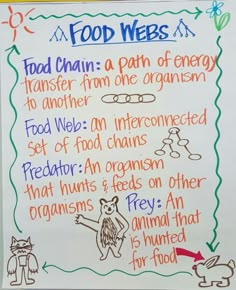 FOOD WEBS
Food Chain: a path of energy
transfer from one organism
to another
Food Web: an interconnected
set of food chains
Predator: An organism
that hunts & feeds on other
organisms
Prey: An
animal that
is hunted
for food